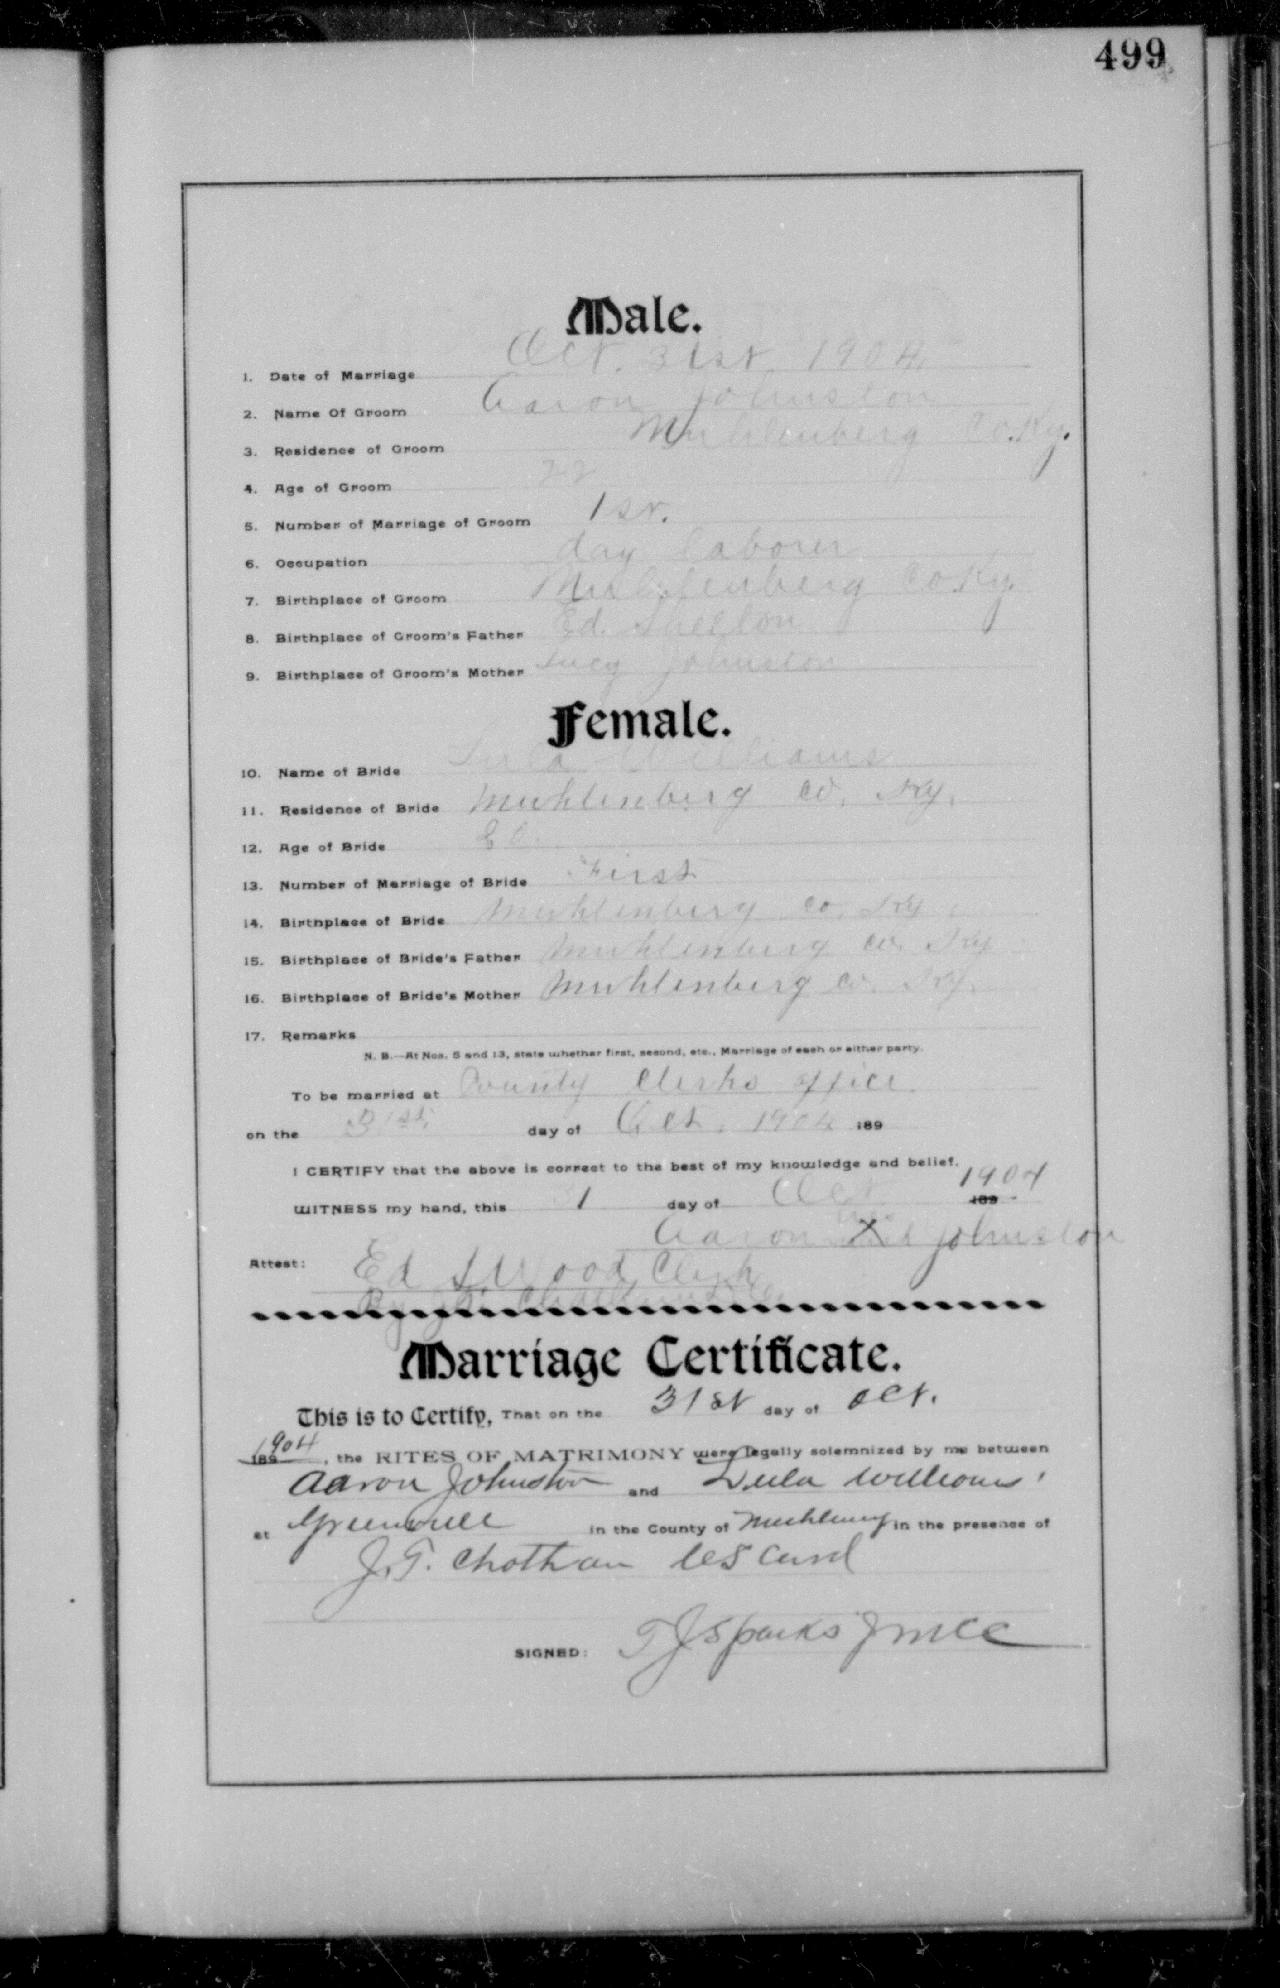 499
Male.
1. Date of Marriage Oct. 31st, 1904
2. Name Of Groom Aaron Johnston
3. Residence of Groom Muhlenberg Co. Ky.
4. Age of Groom 22
5. Number of Marriage of Groom 1st.
6. Occupation day laborer
7. Birthplace of Groom Muhlenberg Co. Ky.
8. Birthplace of Groom's Father Ed. Shelton
9. Birthplace of Groom's Mother Lucy Johnston
Female.
10. Name of Bride Lula Williams
11. Residence of Bride Muhlenberg Co. Ky.
12. Age of Bride
13. Number of Marriage of Bride First
14. Birthplace of Bride Muhlenberg Co. Ky.
15. Birthplace of Bride's Father Muhlenberg Co. Ky
16. Birthplace of Bride's Mother Muhlenberg Co. Ky.
17. Remarks
N. B.—At Nos. 5 and 13, state whether first, second, etc., Marriage of each or either party.
To be married at County Clerks office.
on the 31st day of Oct. 1904 189
I CERTIFY that the above is correct to the best of my knowledge and belief.
WITNESS my hand, this 31 day of Oct 1904 189
Aaron X Johnston
Attest: Ed S Wood, Clerk
Marriage Certificate.
This is to Certify, That on the 31st day of Oct.
1904 189 , the RITES OF MATRIMONY were legally solemnized by me between
Aaron Johnston and Lula Williams
at Greenville in the County of Muhlenberg in the presence of
J. T. Chatham
SIGNED: T J Sparks J M C C